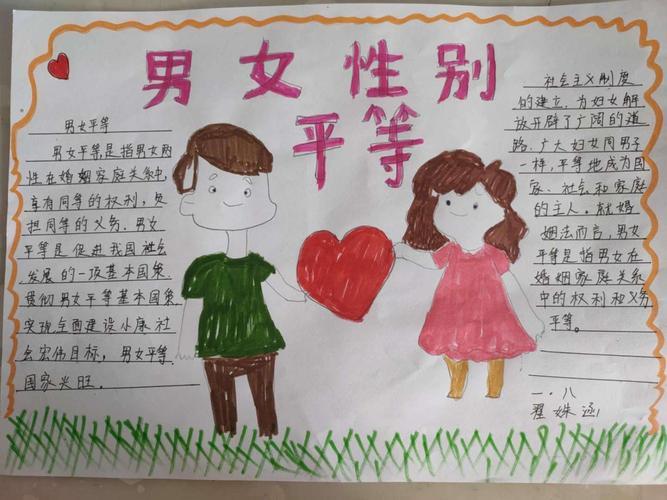 男女性别
平等
男女平等
男女平等,是指男女两
性在婚姻家庭关系中,
享有同等的权利,负
担同等的义务。男女
平等是促进我国社会
发展的一项基本国策.
贯彻男女平等基本国策
实现全面建设小康社
会宏伟目标,男女平等.
国家兴旺.
社会主义制度
的建立,为妇女解
放开辟了广阔的道
路.广大妇女同男子
一样,平等地成为国
家、社会和家庭
的主人。就婚
姻法而言,男女
平等是指男女在
婚姻家庭关系
中的权利和义务
平等。
一.八
翟姝涵